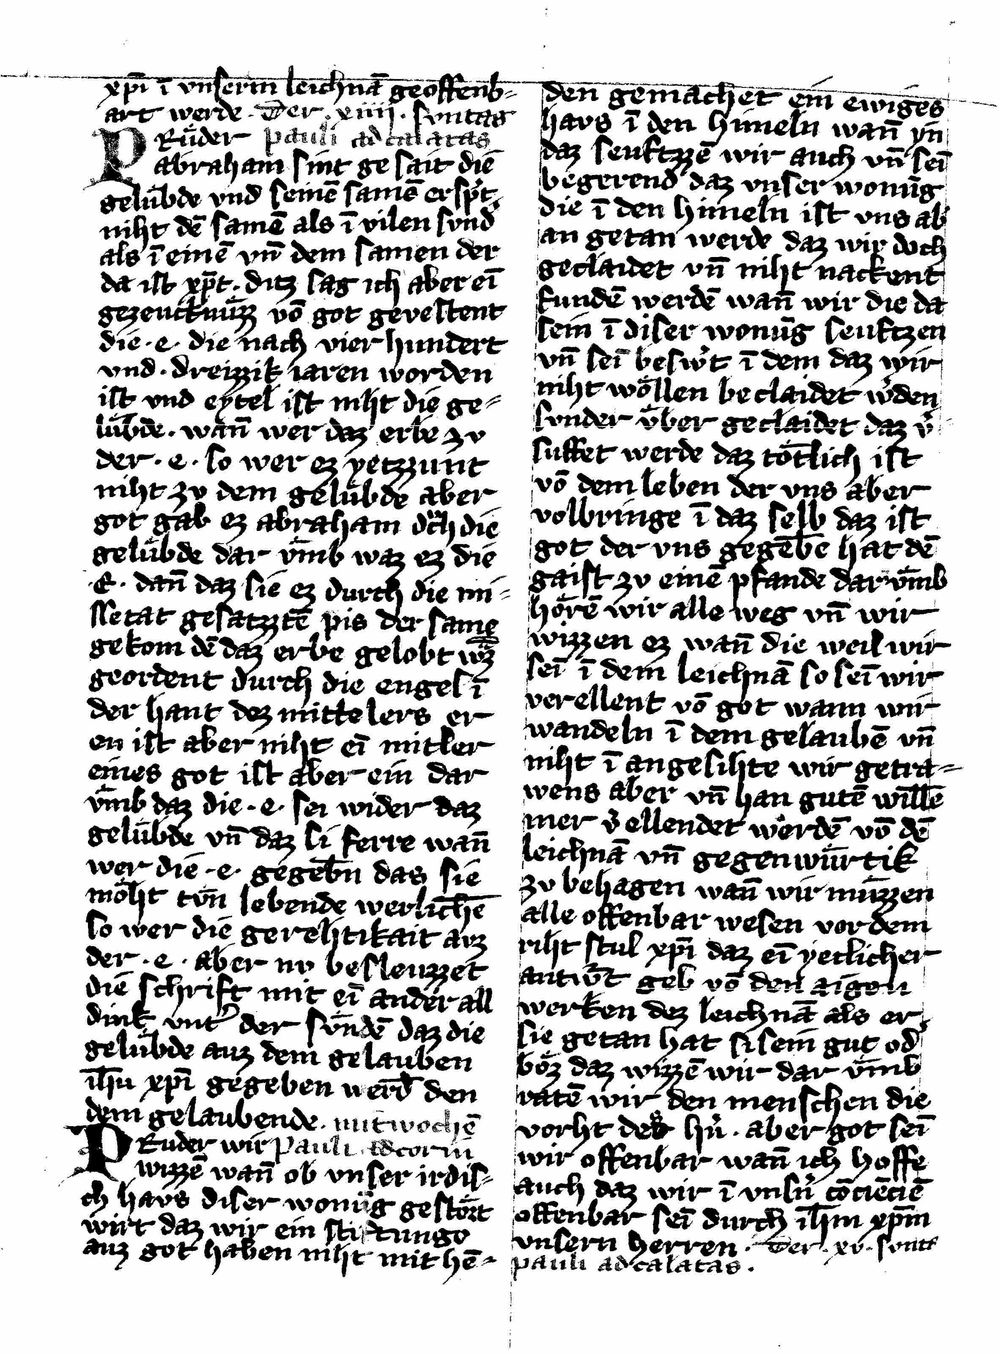 xp̄i ī vnserm leichnā geoffenb-
art werde. Der. xiiii. svntag
PRuͤder pauli ad calatas
abraham sint ge sait die
geluͤbde vnd seinē samē er sp̓t.
niht dē samē als ī vilen svnd̓
als ī einē vn̄ dem samen der
da ist xp̄t. ditz sag ich aber eī
gezeucknuͤzz vō got gevestent
die. e. die nach vier hundert
vnd. dreizzik iaren worden
ist vnd eytel ist niht die ge-
luͤbde. wan̄ wer daz erbe zv
der. e. so wer ez yetzzunt
niht zv dem geluͤbde aber
got gab ez abraham dͨch die
geluͤbde dar vͤmb waz ez die
E. dan̄ daz sie ez durch die mi-
ssetat gesatzztē pis der same
gekom dē daz erbe gelobt wͣz
geordent durch die engel ī
der hant dez mittelers er
en ist aber niht eī mitler
eines got ist aber ein dar
vͤmb daz die. e. sei wider daz
geluͤbde vn̄ daz si ferre wan̄
wer die. e. gegebn̄ das sie
moͤht tvn̄ lebende werlichē
so wer die gerehtikait avz
der. e. aber nv besleuzzet
die schrift mit eī ander all
dink vnt̓ der svndē daz die
geluͤbde auz dem gelauben
ih̄u xp̄i gegeben werd̓ den
dem gelaubende. mitwochē
PRuder wir Pauli ad corin̄
wizzē wan̄ ob vnser irdis-
ch havs diser wonūg gestoͤrt
wirt daz wir ein stiftungo
auz got haben niht mit hē-
den gemachet ein ewiges
havs ī den himeln wan̄ yn̄
daz seuftzzē wir auch vn̄ seī
begerend daz vnser wonūg
die ī den himeln ist vns ab̓
an getan werde daz wir doch
geclaidet vn̄ niht nackent
fundē werdē wan̄ wir die da
sein ī diser wonūg seuftzen
vn̄ seī besw̓t ī dem daz wir
niht woͤllen beclaidet w̓den
svnder vͤber geclaidet daz v̓
suffet werde daz toͤtlich ist
vō dem leben der vns aber
volbringe ī daz selb daz ist
got der vns gegebē hat dē
gaist zv einē pfande dar vͤmb
hoͤrē wir alle weg vn̄ wir
wizzen ez wan̄ die weil wir
seī ī dem leichnā so seī wir
verellent vō got wann wir
wandeln ī dem gelaubē vn̄
niht ī angesihte wir getra-
wens aber vn̄ han gutē willē
mer v̓ ellendet werdē vō dē
leichnā vn̄ gegenwuͤrtik
zv behagen wan̄ wir muͤzzen
alle offenbar wesen vor dem
riht stul xp̄i daz eī yetlicher
antw̓t geb vō den aigen
werken dez leichnā als er
sie getan hat si sein gut od̓
boͤz daz wizzē wir dar vͤmb
ratē wir den menschen die
vorht dez hn̓. aber got seī
wir offenbar wan̄ ich hoffe
auch daz wir ī vnsn̓ cōciēciē
offenbar seī durch ih̄m xp̄m
vnsern herren. Der. xv. svnte
pauli ad calatas.